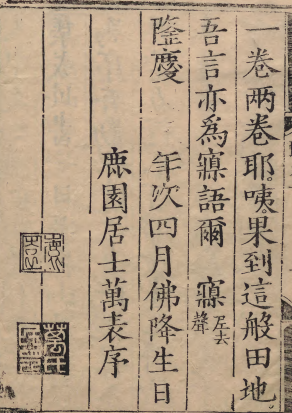 一卷兩卷耶。咦。果到這般田地。
吾言亦為寱語爾　寱尼去聲
隆慶　年次四月佛降生日
鹿園居士萬表序